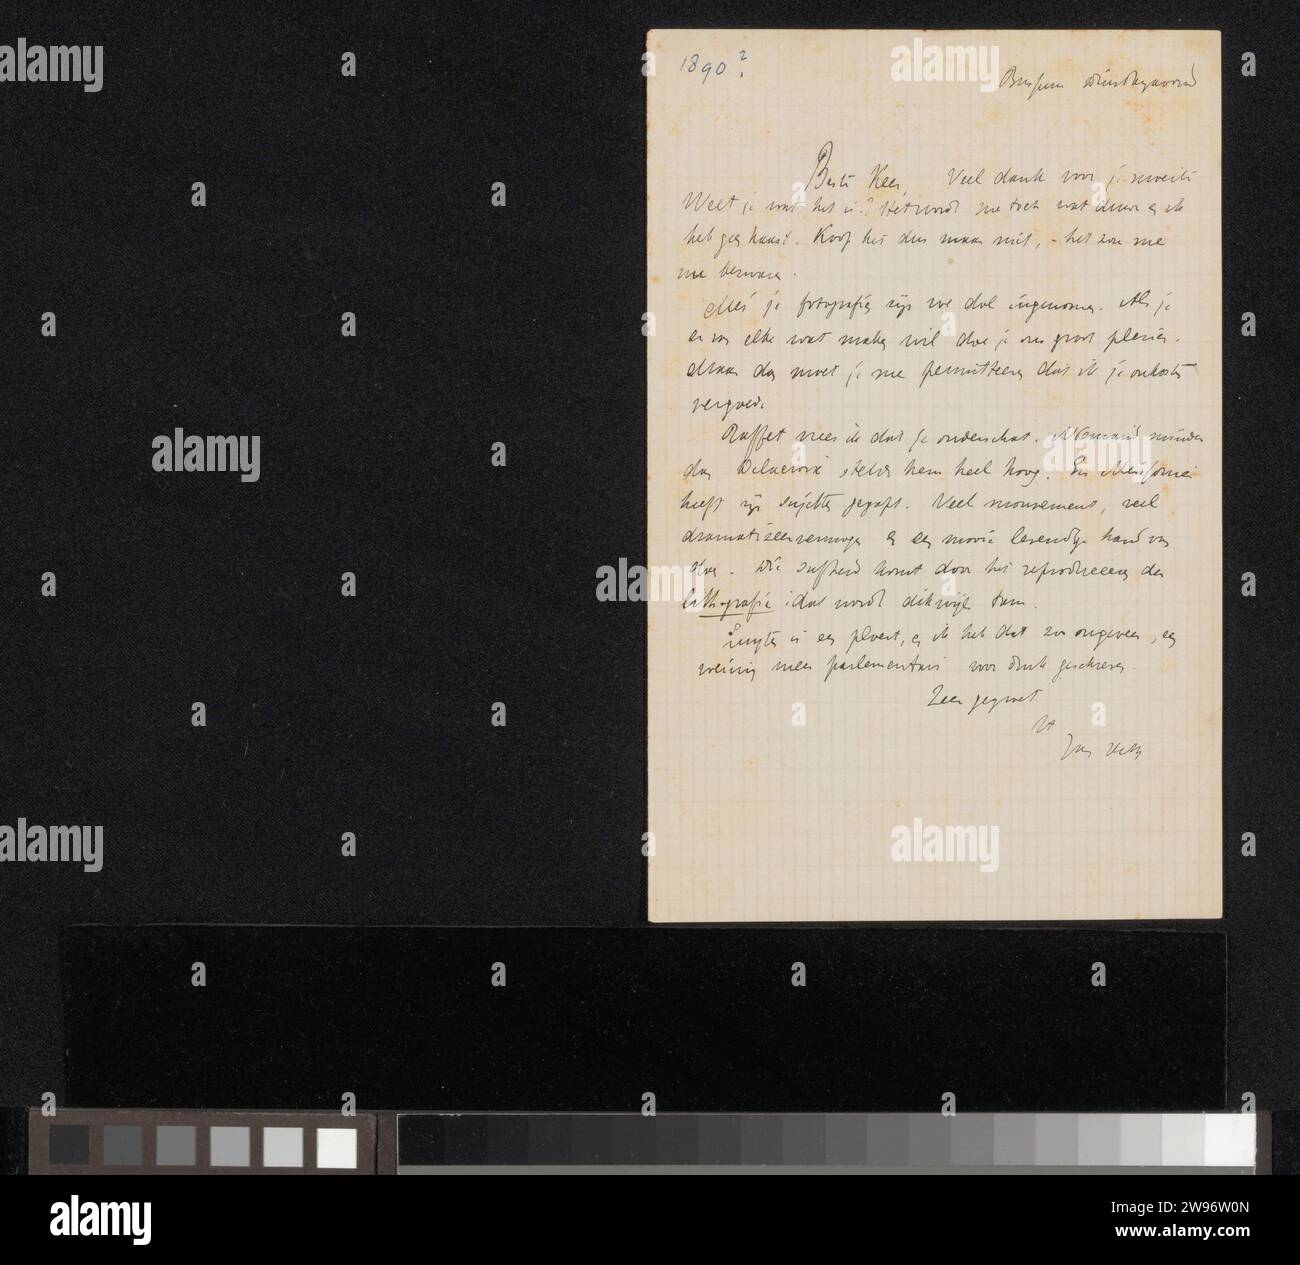 1890?
Bussum Dinsdagavond
Beste Kees Veel dank voor je moeite
Weet je wat het is? Het wordt me toch wat duur en ik
heb geen haast. Koop het dus maar niet, - het zou me
Met je fotografies zijn we dol ingenomen. Als je
er van elke wat maken wil doe je ons groot plezier.
Maar dan moet je me permitteeren dat ik je onkosten
vergoed.
Raffet vrees ik dat je onderschat. Niemand minder
dan Delacroix stelde hem heel hoog. En Meissonier
heeft zijn sujetten gegapt. Veel mouvement, veel
dramatiseervermogen en een mooie levendige hand van
doen. Die sufheid komt door het reproduceeren der
lithografie: dat wordt dikwijls tam.
is een ploert, en ik heb dat zoo ongeveer, een
weinig meer parlementair voor druk geschreven.
Zeer gegroet
Jan Veth
alamy
Image ID: 2W96W0N
www.alamy.com